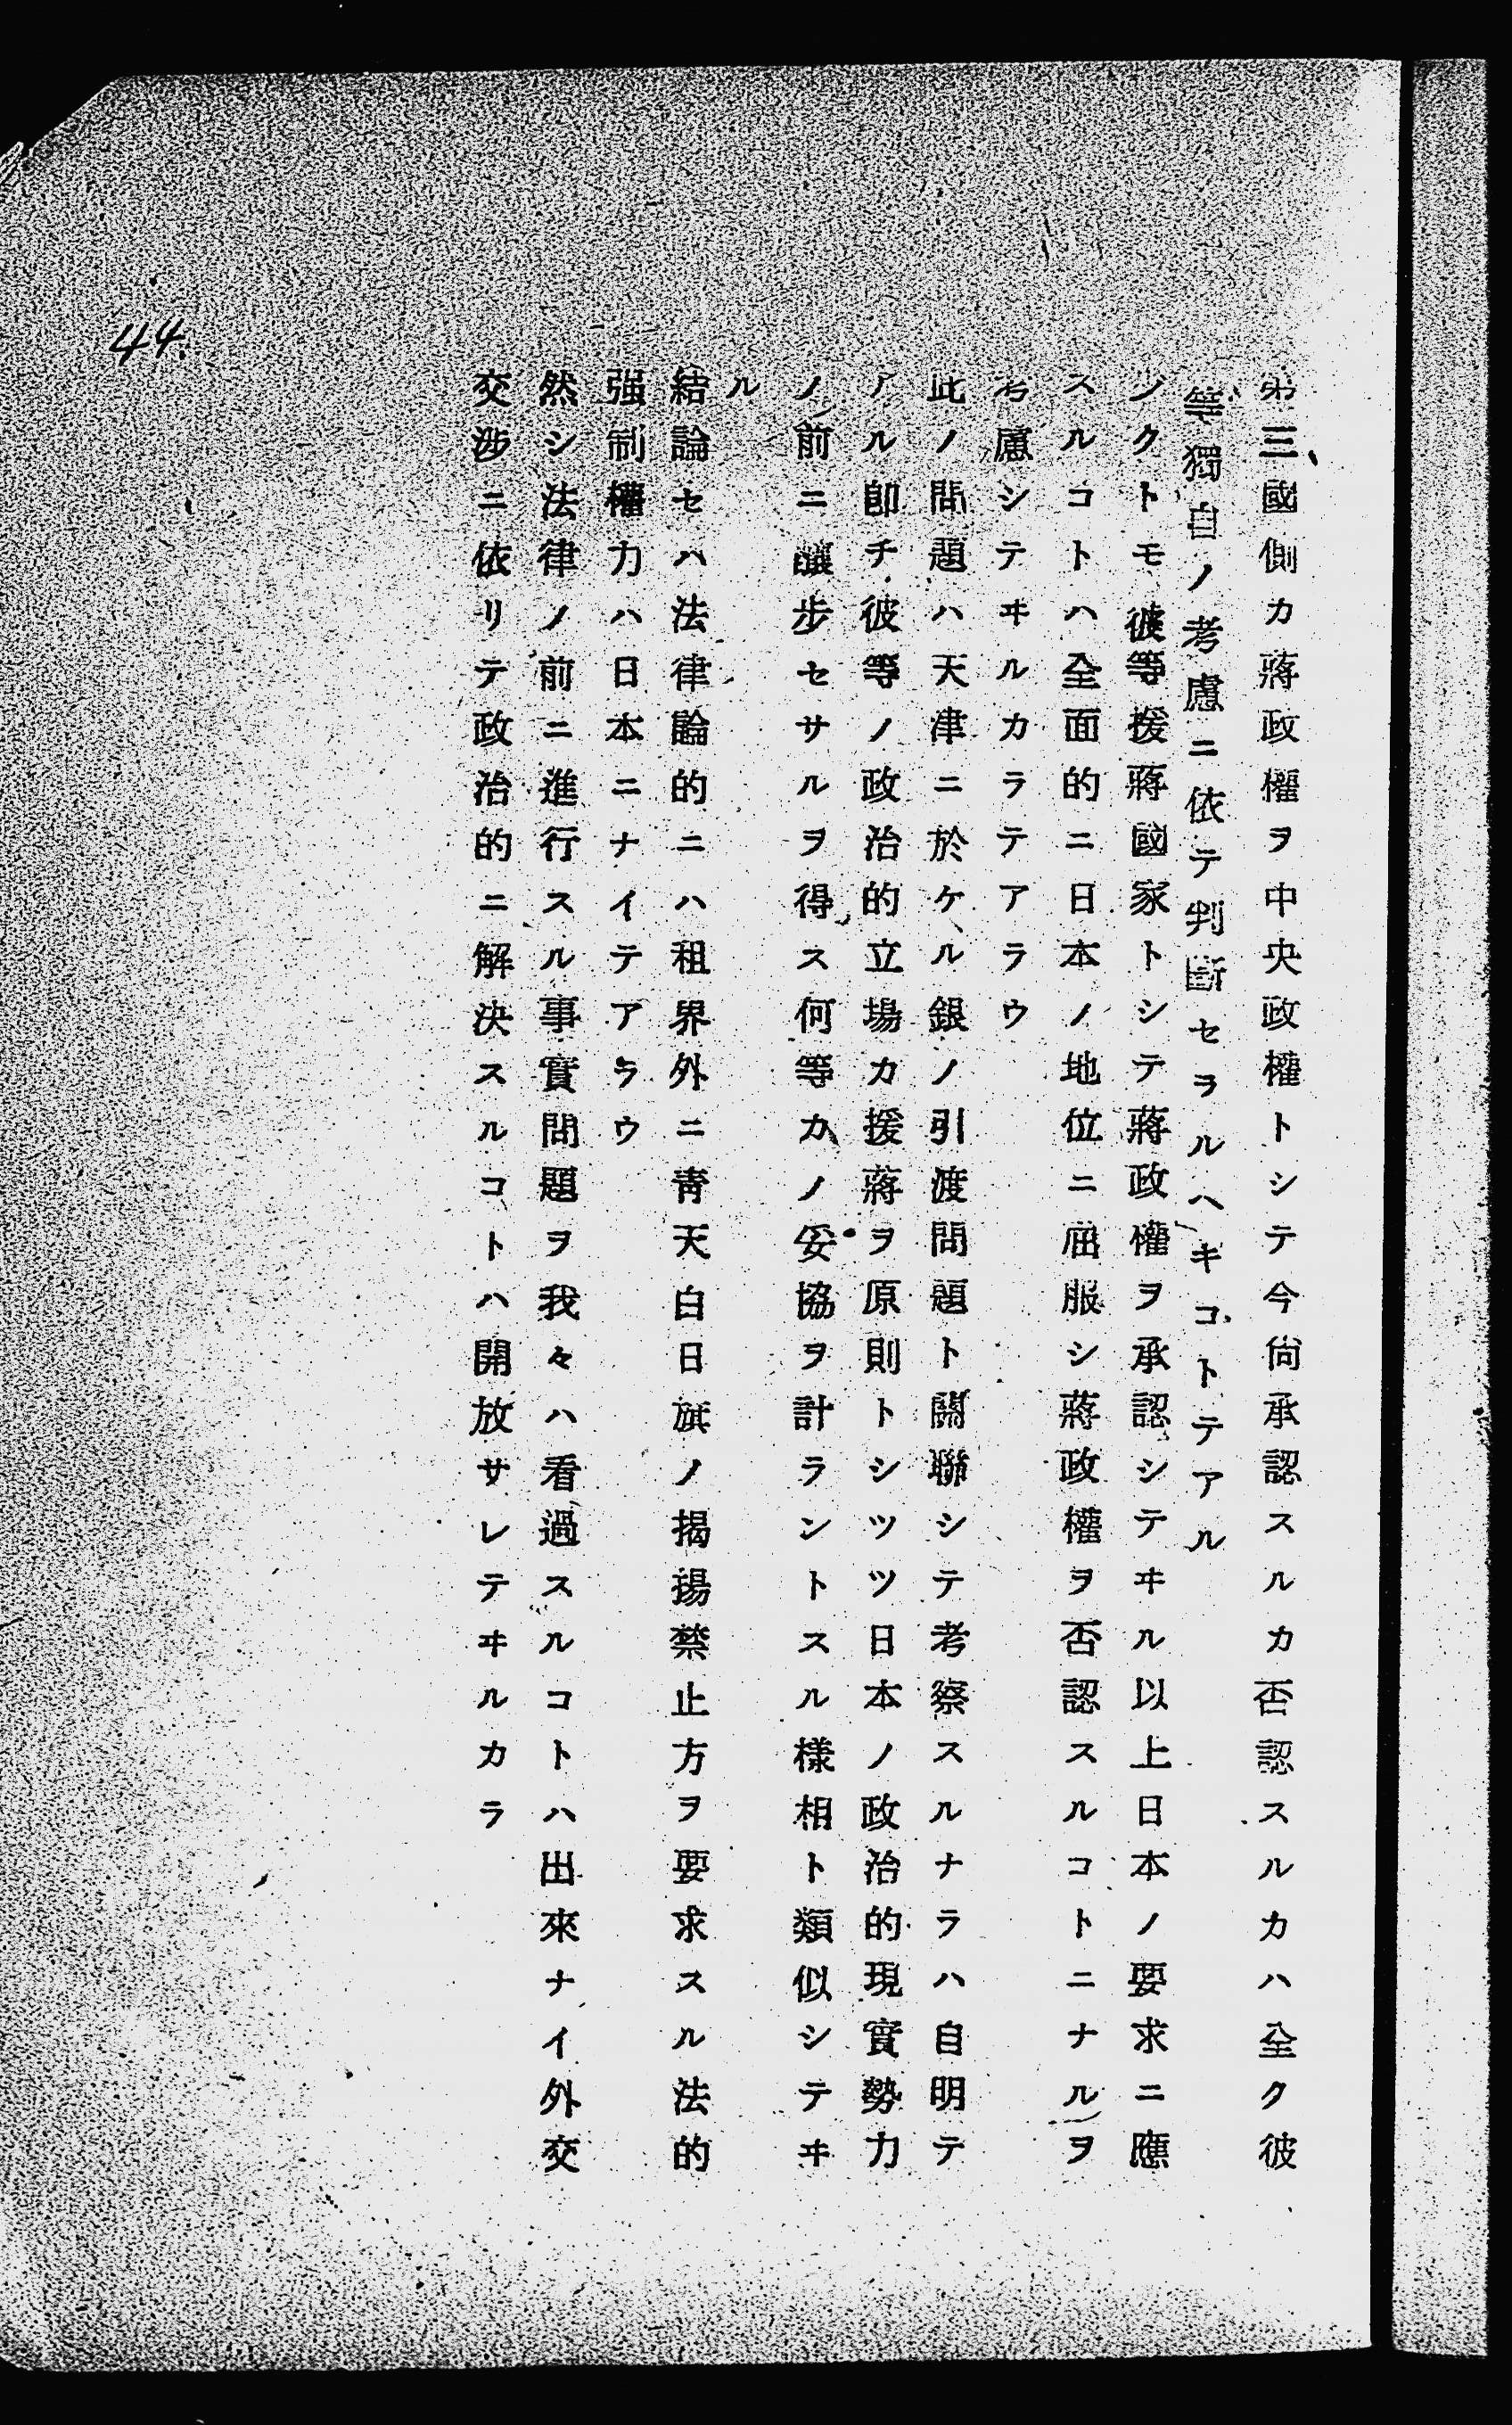 第三國側カ蔣政權ヲ中央政權トシテ今尙承認スルカ否認スルカハ全ク彼
等獨自ノ考慮ニ依テ判斷セラルヘキコトテアル
少クトモ彼等援蔣國家トシテ蔣政權ヲ承認シテヰル以上日本ノ要求ニ應
スルコトハ全面的ニ日本ノ地位ニ屈服シ蔣政權ヲ否認スルコトニナルヲ
考慮シテヰルカラテアラウ
此ノ問題ハ天津ニ於ケル銀ノ引渡問題ト關聯シテ考察スルナラハ自明テ
アル卽チ彼等ノ政治的立場カ援蔣ヲ原則トシツツ日本ノ政治的現實勢力
ノ前ニ讓步セサルヲ得ス何等カノ妥協ヲ計ラントスル樣相ト類似シテヰ
ル
結論セハ法律論的ニハ租界外ニ靑天白日旗ノ揭揚禁止方ヲ要求スル法的
强制權力ハ日本ニナイテアラウ
然シ法律ノ前ニ進行スル事實問題ヲ我々ハ看過スルコトハ出來ナイ外交
交涉ニ依リテ政治的ニ解決スルコトハ開放サレテヰルカラ
44.